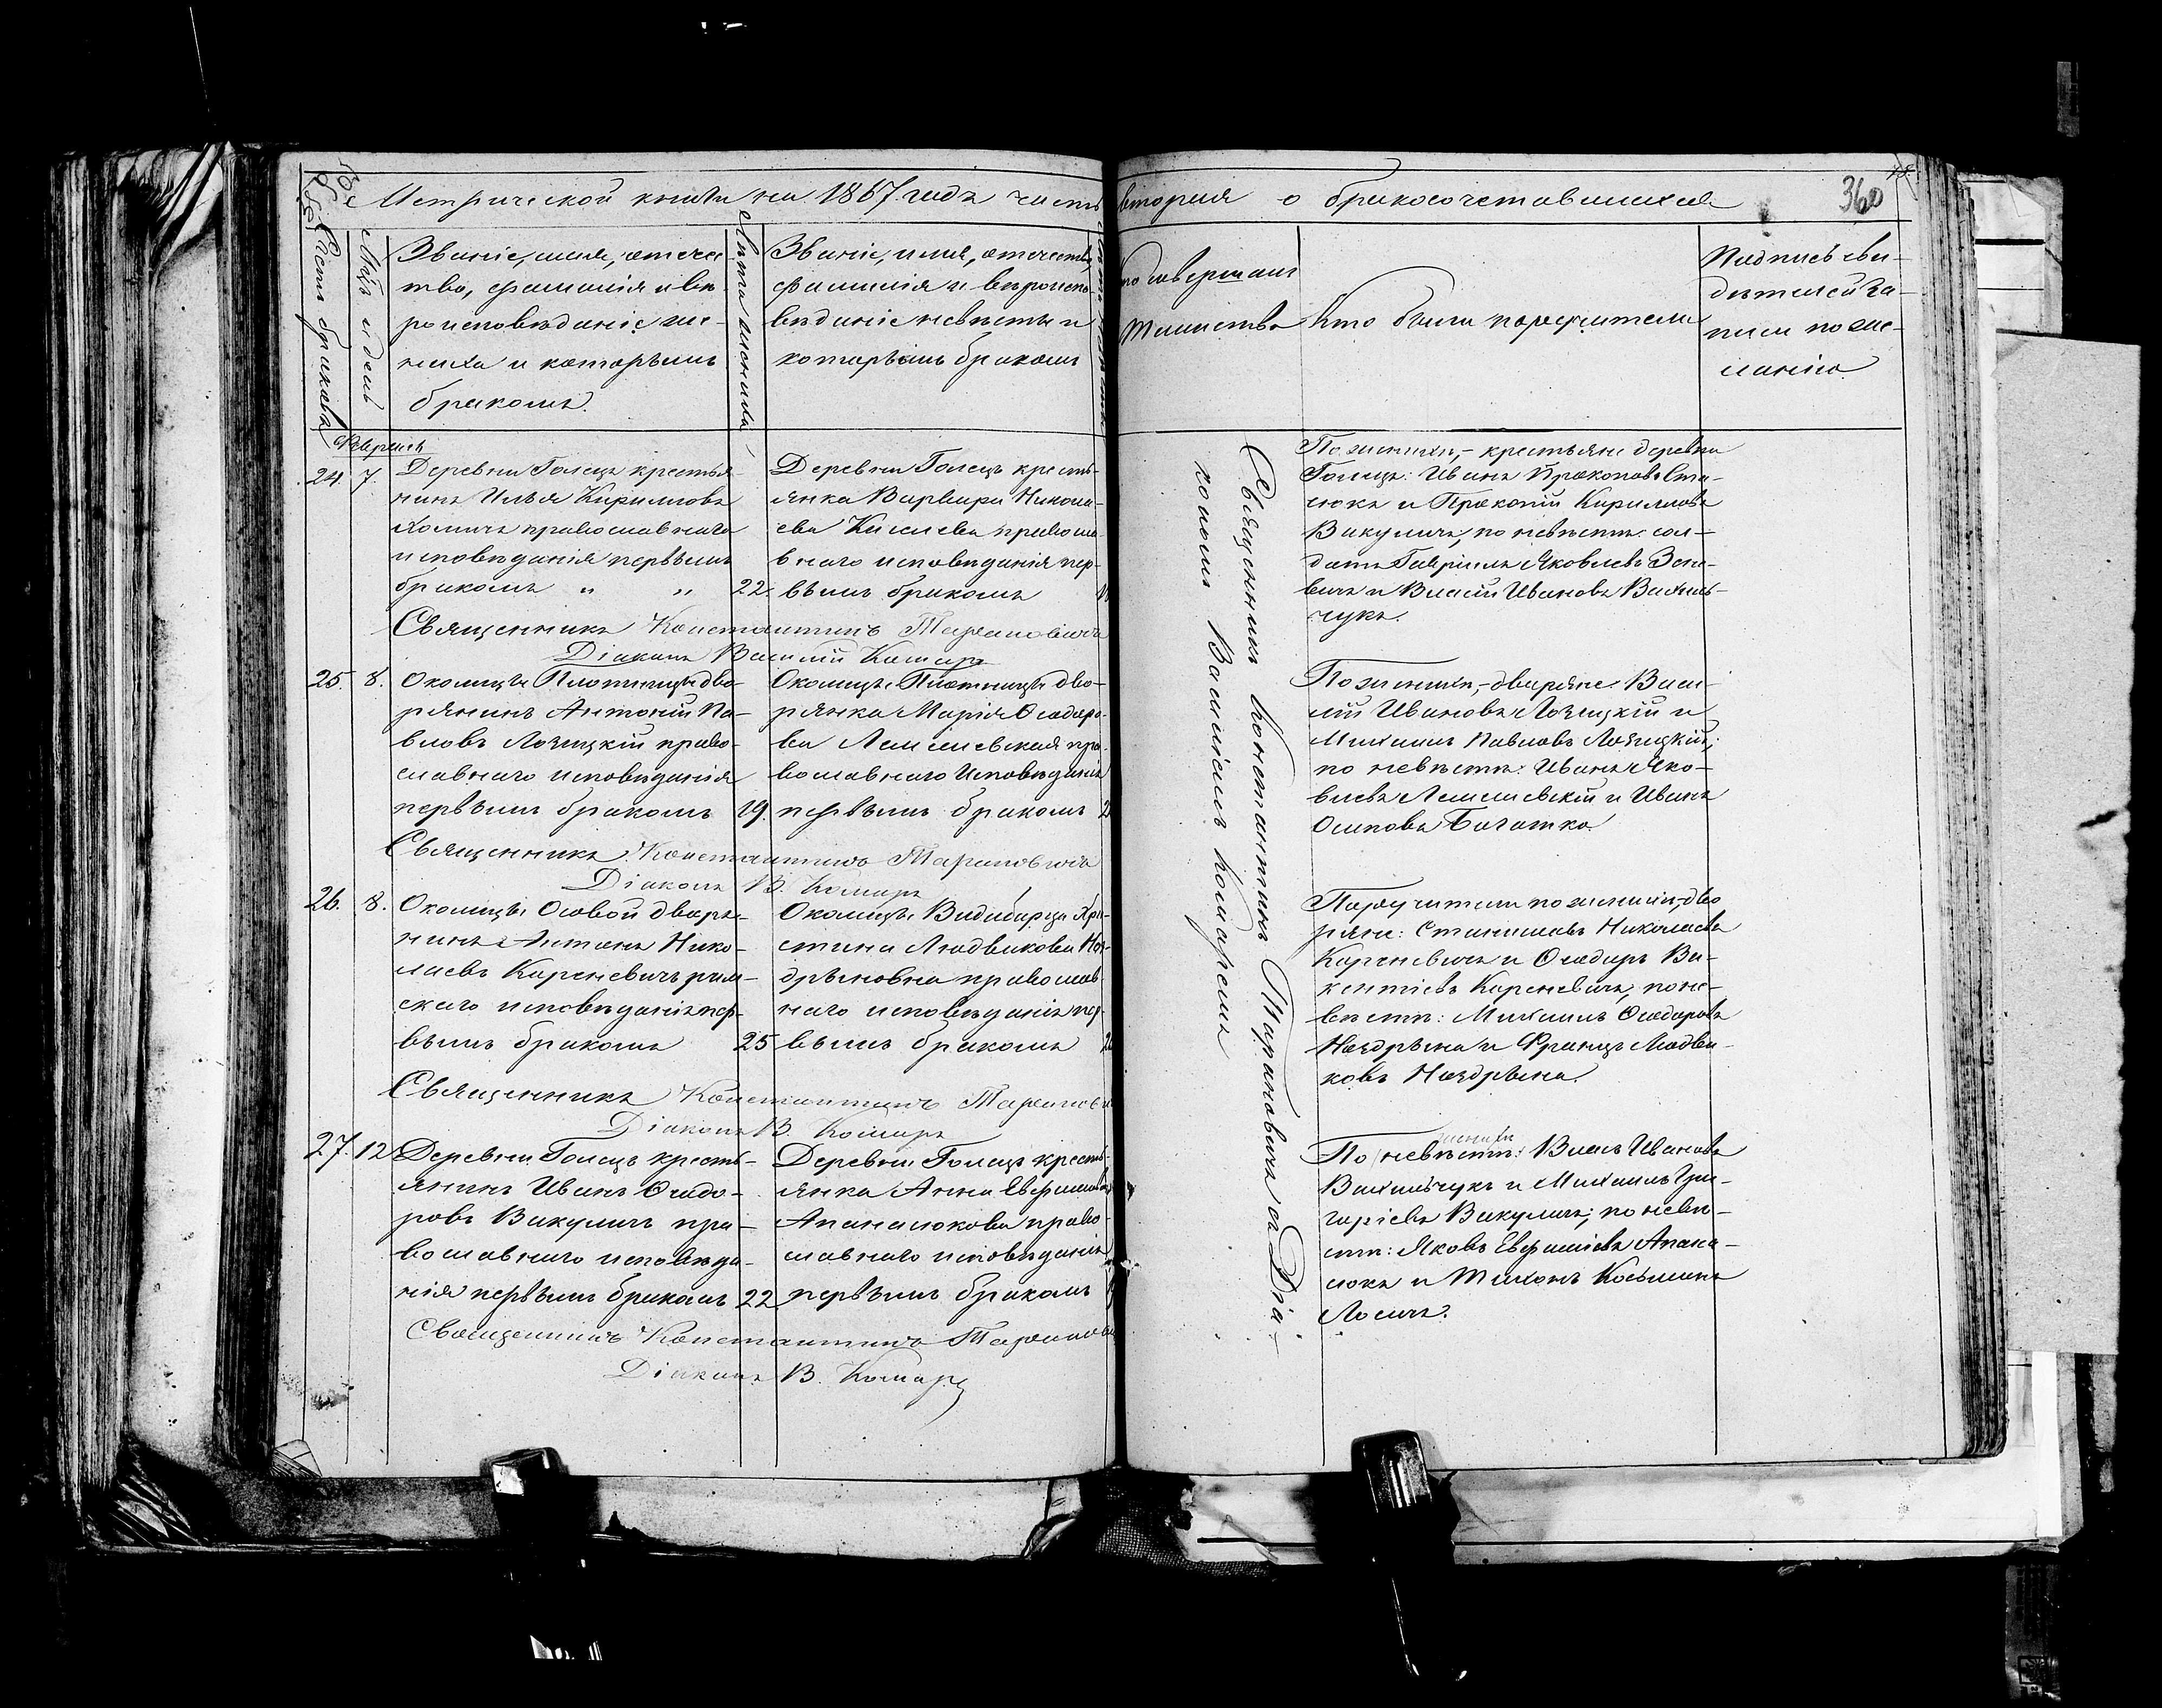 Метрической книги на 1867 годъ часть вторая о бракосочетавшихся
360
Счетъ браковъ
Мѣц. и день
Званіе, имя, отече-
тво, фамилія и вѣ-
роисповѣданіе же-
ниха и которымъ
бракомъ.
Лѣта жениха
Званіе, имя, отечество,
фамилія и вѣроиспо-
вѣданіе невѣсты и
которымъ бракомъ
Кто совершалъ
таинство
Кто были поручители
Подпись сви-
дѣтелей за-
писи по же-
ланію.
Февраль
24. 7. Деревни Голецъ крестья-
нинъ Илья Кириловъ
православнаго
исповѣданія первымъ
бракомъ „ „ 22.
Деревни Голецъ кресть-
янка Варвара Никола-
ева Киселева правосла-
внаго исповѣданія пер-
вымъ бракомъ
По женихѣ,- крестьяне деревни
Голецъ: Иванъ Прокоповъ Ста-
сюкъ и Прокопій Кириловъ
Викуличъ, по невѣстѣ: сол-
датъ Гавріилъ Яковлевъ Зень-
вичъ и Власій Ивановъ Вихнов-
чукъ.
Священникъ Константинъ Тарановичъ
Діаконъ Василій Комаръ
25. 8. Околицы Плотницы дво-
рянинъ Антоній Па-
вловъ Лозицкій право-
славнаго исповѣданія
первымъ бракомъ 19.
Околицы Плотницы дво-
рянка Марія Ѳеодоро-
ва Лемешевская пра-
вославнаго исповѣданія
первымъ бракомъ
По женихѣ,- дворяне: Васи-
лій Ивановъ Лозицкій и
Михаилъ Павловъ Лозицкій;
по невѣстѣ: Иванъ Яко-
влевъ Лемешевскій и Иванъ
Осиповъ Богатко.
Священникъ Константинъ Тарановичъ
Діаконъ В. Комаръ
26. 8. Околицы Осовой дворя-
нинъ Антонъ Нико-
лаевъ Кореневичъ рим-
скаго исповѣданія пер-
вымъ бракомъ 25
Околицы Видиборца Хри-
стина Людвикова Ноз-
дрыновна православ-
наго исповѣданія пер-
вымъ бракомъ
Поручители по женихѣ, дво-
ряне: Станиславъ Николаевъ
Кореневичъ и Ѳеодоръ Ви-
кентіевъ Кореневичъ, по не-
вѣстѣ: Михаилъ Ѳеодоровъ
Ноздрынъ и Францъ Людви-
ковъ Ноздрынъ.
Священникъ Константинъ Таранович
Діаконъ В. Комаръ
27. 12 Деревни Голецъ кресть-
янинъ Иванъ Ѳеодо-
ровъ Викуличъ пра-
вославнаго исповѣда-
нія первымъ бракомъ 22
Деревни Голецъ кресть-
янка Анна Евфимова
Апанасюкова право-
славнаго исповѣданія
первымъ бракомъ
женихѣ
По невѣстѣ: Власъ Ивановъ
Вихновчукъ и Михаилъ Гри-
горіевъ Викуличъ; по невѣ-
стѣ: Яковъ Евфиміевъ Апана-
сюкъ и Тихонъ Косьминъ
Лосичъ.
Священникъ Константинъ Таранович
Діаконъ В. Комаръ
Священникъ Константинъ Тарановичъ съ Діа-
кономъ Василіемъ Комаремъ